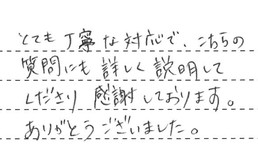 とても丁寧な対応で、こちらの
質問にも詳しく説明して
くださり感謝しております。
ありがとうございました。